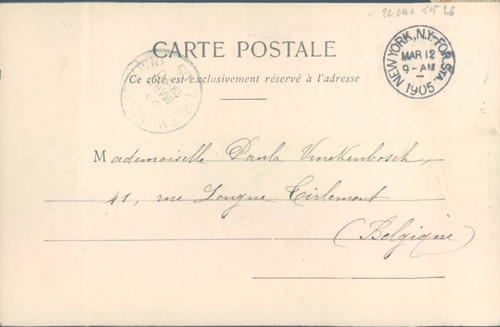 CARTE POSTALE
Ce côté est exclusivement réservé à l'adresse
NEW YORK, N.Y.-FOR. Sta.
MAR 12
9-AM
1905
TIRLEMONT
Mademoiselle Paula Vinckenbosch,
41, rue Longue Tirlemont
(Belgique)